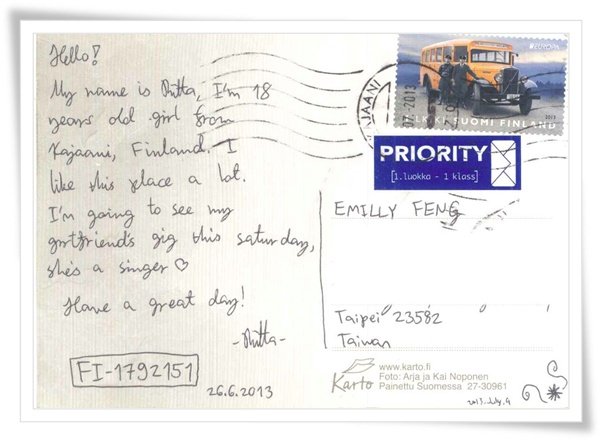 Hello!
My name is Riitta, I'm 18
years old girl from
Kajaani, Finland. I
like this place a lot.
I'm going to see my
girlfriend's gig this saturday,
she's a singer ♡
Have a great day!
-Riitta-
FI-1792151
26.6.2013
EUROPA
2013
SUOMI FINLAND
KAJAANI
PRIORITY
[1.luokka - 1 klass]
EMILLY FENG
Taipei 23582
Taiwan
Karto
www.karto.fi
Foto: Arja ja Kai Noponen
Painettu Suomessa 27-30961
2013.July.9